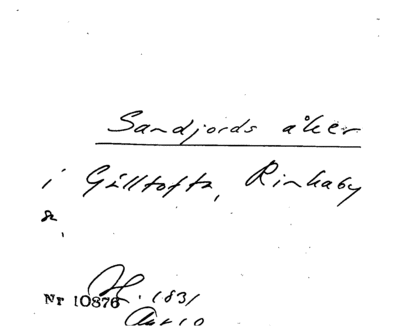 Sandjords åker
i Gälltofta, Rinkaby
Nr 10876 . 1831